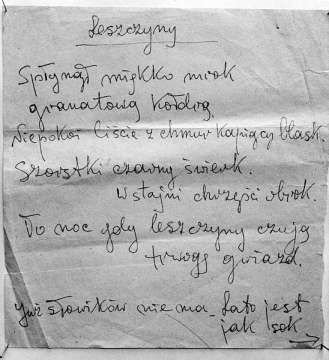 Leszczyny
Spłynął miękko mrok
granatową kołdrą.
Niepokoi liście z chmur kapiący blask.
Szorstki czarny świerk.
W stajni chrzęści obrok.
To noc gdy leszczyny czują
trwogę gwiazd.
Już słowików nie ma. Lato jest
jak sok